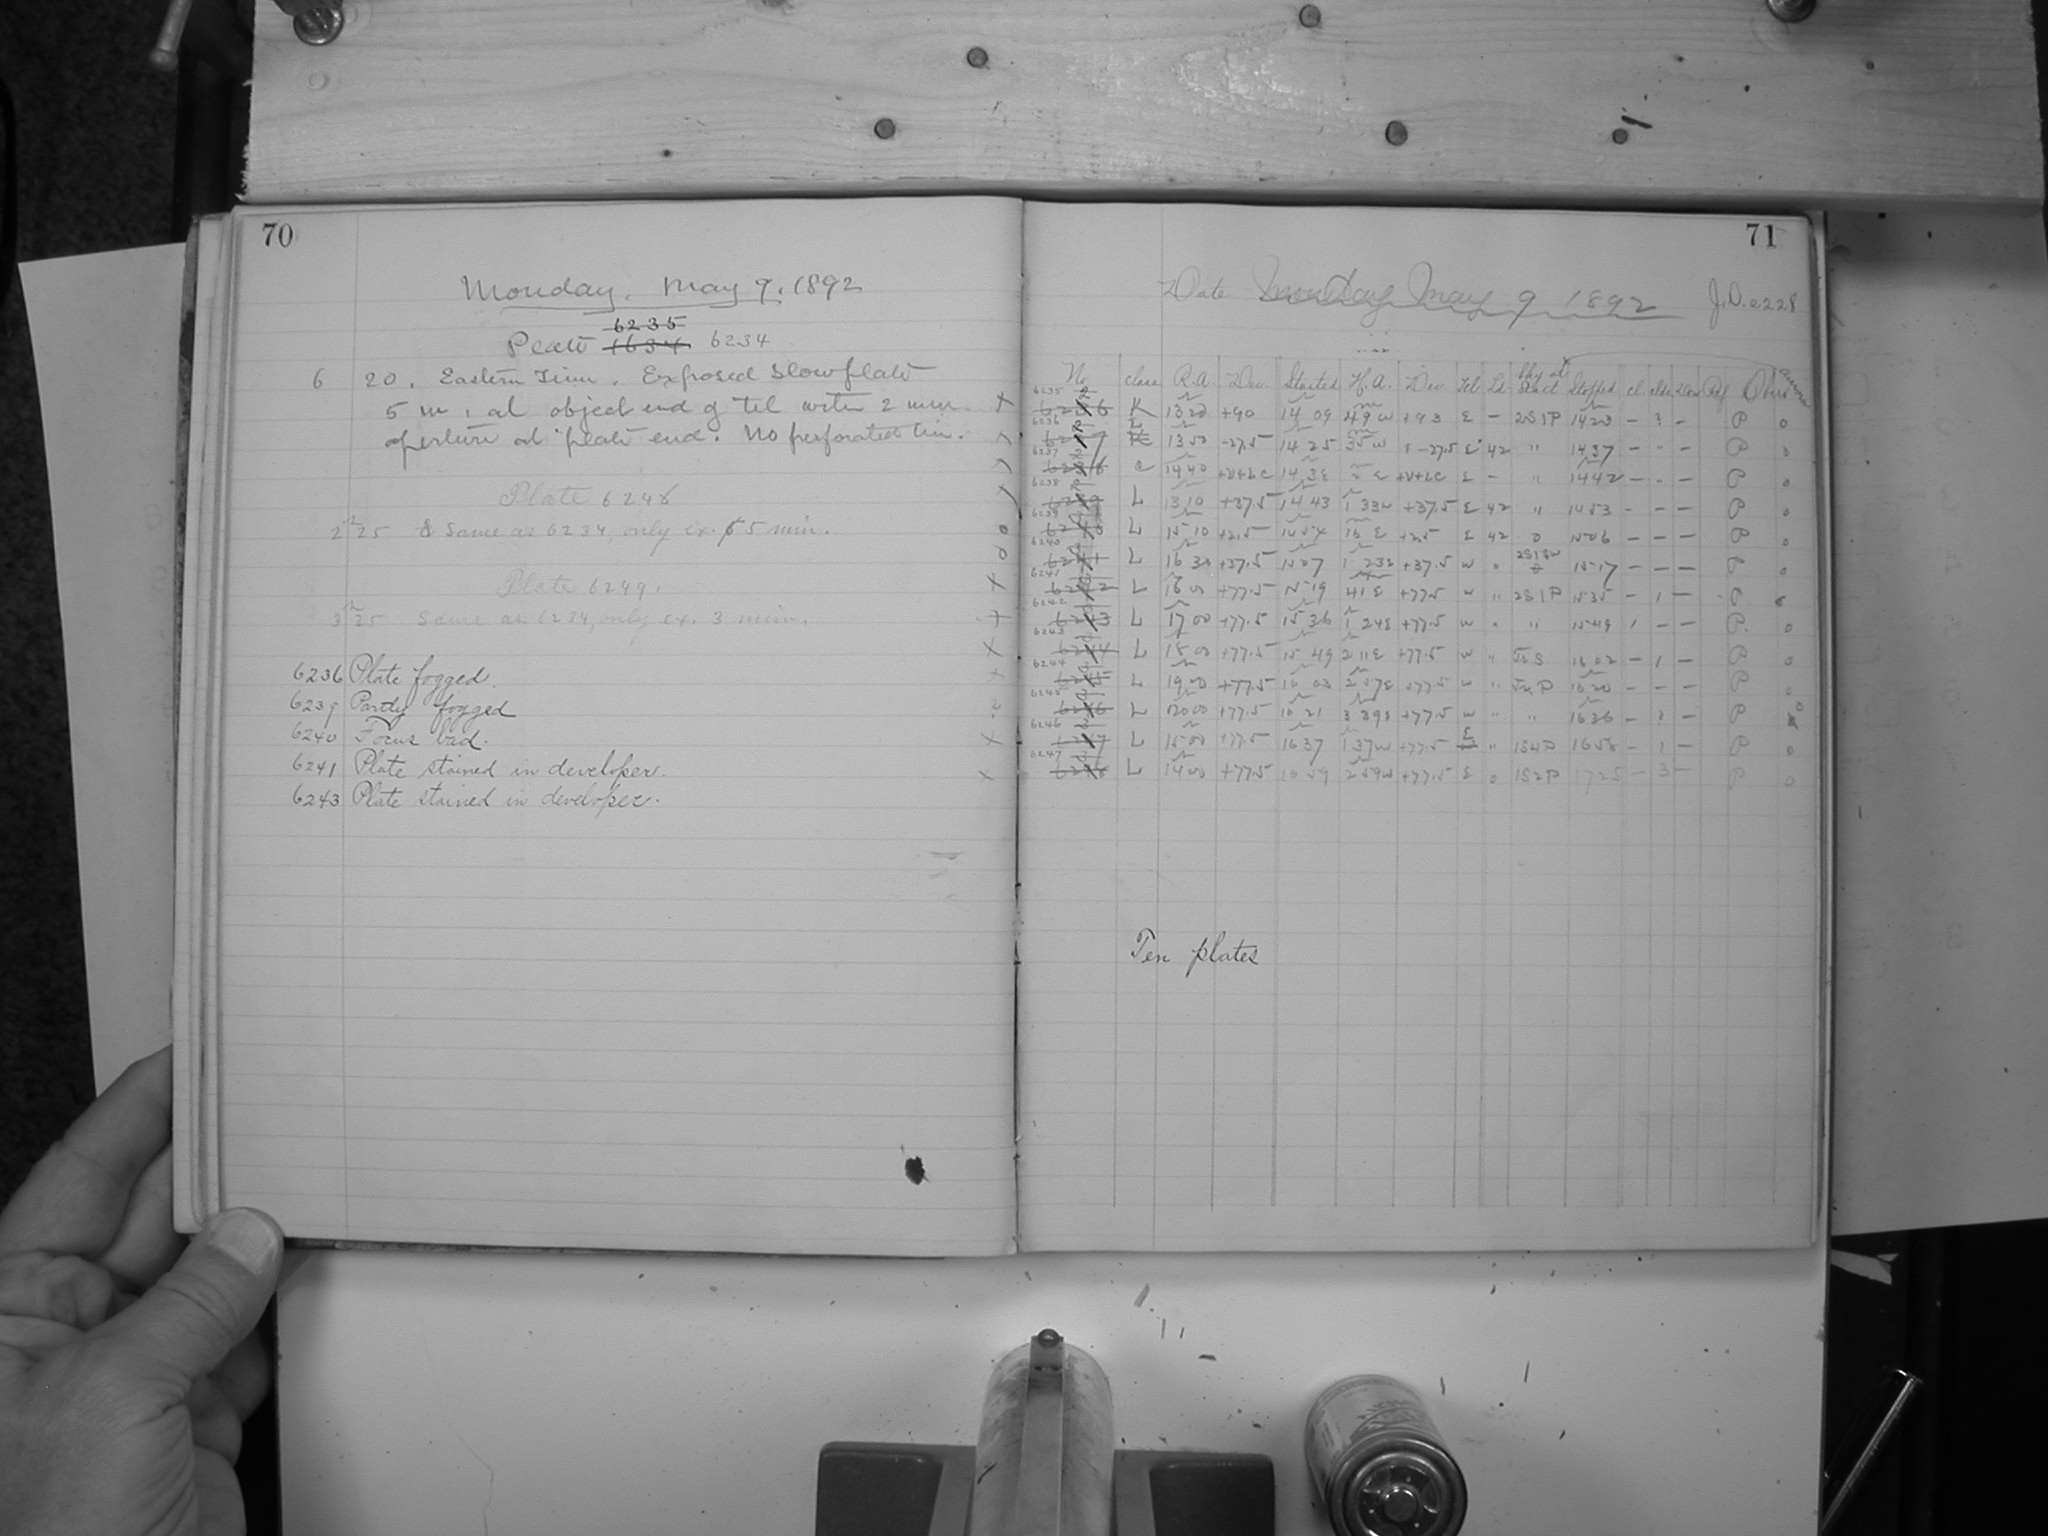 70
Monday, May 9, 1892
6235
Plate 1634 6234
6 20. Eastern Time. Exposed slow plate
5 m. at object end of tel with 2 mm.
aperture at plate end. No perforated tin.
Plate 6248
2h 25 Same as 6234, only ex. 5 min.
Plate 6249.
3h 25 Same as 6234, only ex. 3 min.
6236 Plate fogged.
6239 Partly fogged
6240 Focus bad.
6241 Plate stained in developer.
6243 Plate stained in developer.
71
Date Monday May 9 1892 J.D. 2228
No. class R.A. Dec. Started H.A. Dec. Tel. Sky at Start Stopped cl. Obsr Aurora
6235 K +90 14 09 49 W +93 E - 2S1P 1423 - ? - P 0
6236 L 13 50 -27.5 14 25 35 W -27.5 E 42 " 1437 - - - P 0
6237 C 14 40 E - " 1442 - - - P 0
6238 L 13 10 +37.5 14 43 1 33 W +37.5 E 42 " 1453 - - - P 0
6239 L 15 10 +2.5 16 E +2.5 E 42 0 1506 - - - P 0
6240 L 16 30 +37.5 15 07 1 23 E +37.5 W " 1517 - - - P 0
6241 L 16 00 +77.5 15 19 41 E +77.5 W " 2S1P 1535 - 1 - P 0
6242 L 17 00 +77.5 15 36 1 24 E +77.5 W " " 1549 1 - - P 0
6243 L 18 00 +77.5 15 49 2 11 E +77.5 W " 1602 - 1 - P 0
6244 L 19 00 +77.5 16 03 2 57 E +77.5 W " 1620 - - - P 0
6245 L 20 00 +77.5 16 21 3 39 E +77.5 W " " 1636 - ? - P 0
6246 L 15 00 +77.5 16 37 1 37 W +77.5 E " 1S4P 1658 - 1 - P 0
6247 L 14 00 +77.5 16 59 2 59 W +77.5 E 0 1S2P 1725 - 3 - P 0
Ten plates